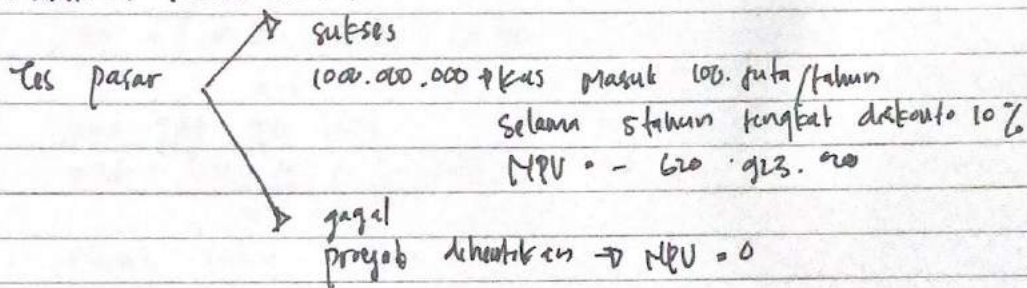 sukses
Tes pasar
1000.000.000 + Kas Masuk 100. juta/tahun
Selama 5 tahun tingkat diskonto 10%
NPV = - 620 . 923.
gagal
proyek dihentikan → NPV = 0